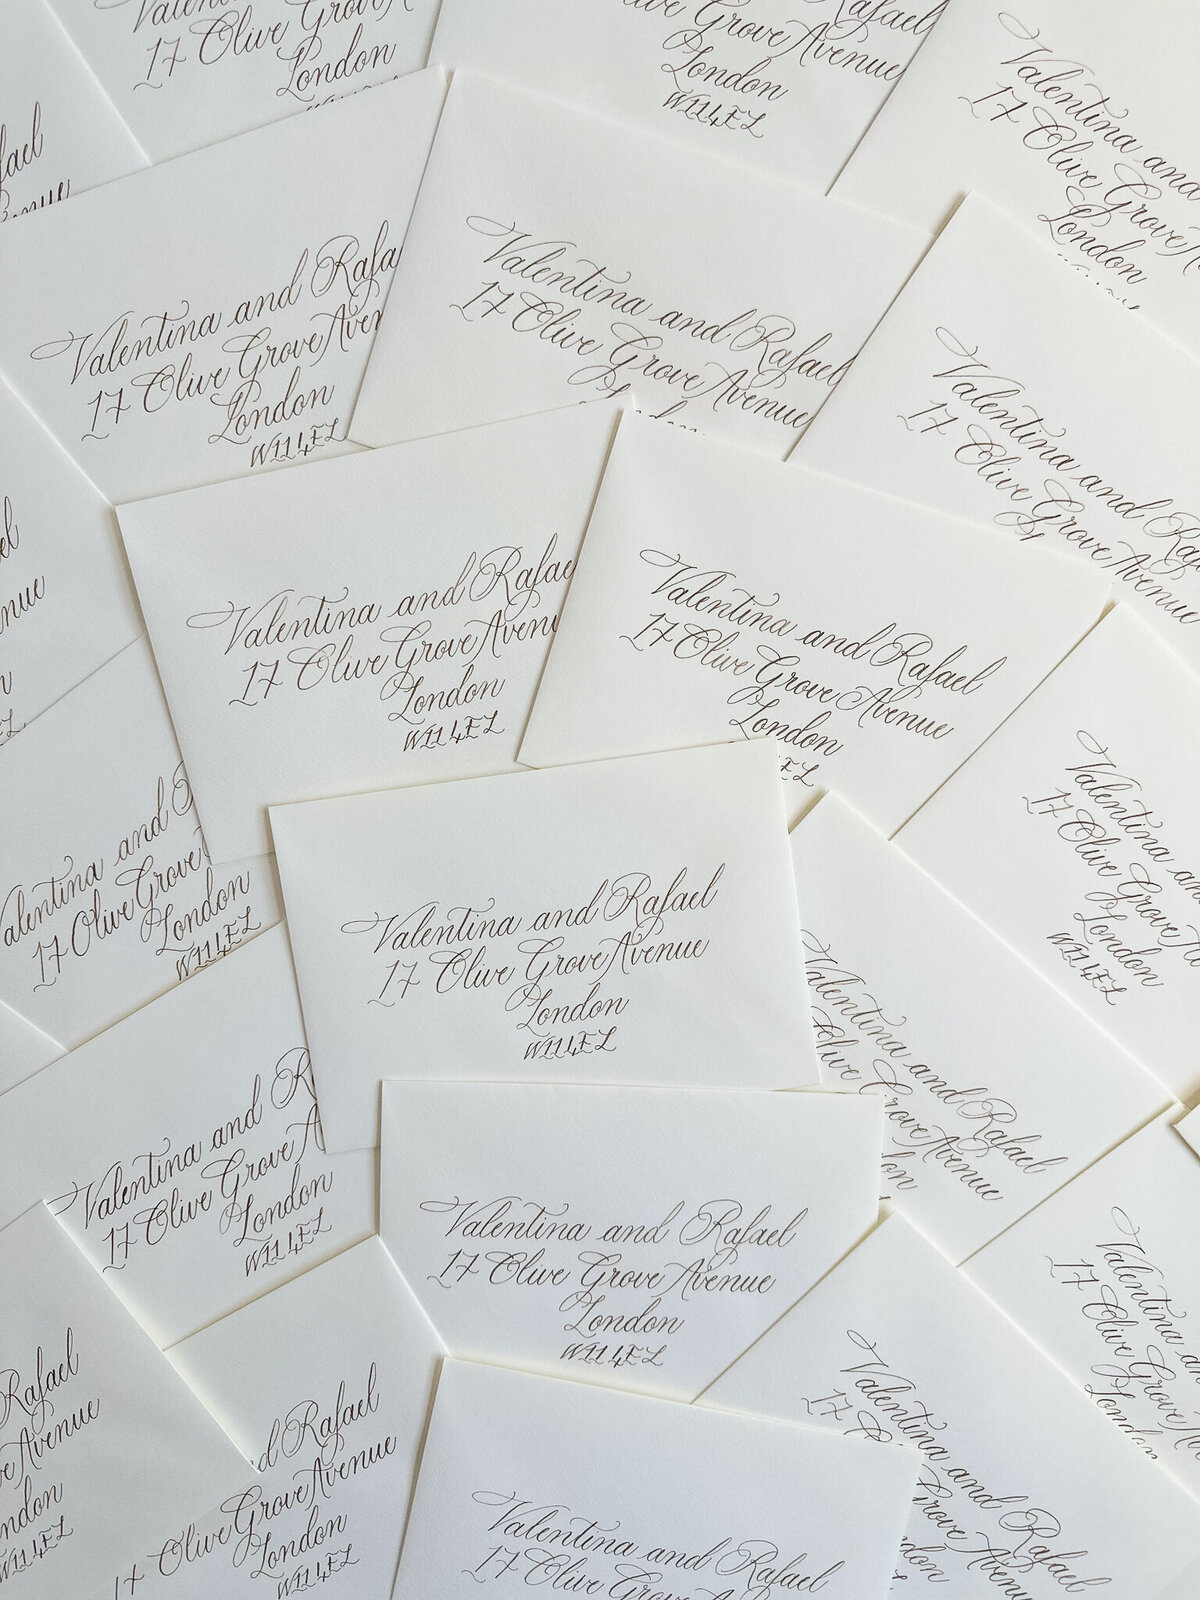 Valentina
17 Olive Grove
London
Grove Avenue
London
W11 4EL
Valentina and
17 Olive Grove
London
Rafael
Valentina and Rafa
17 Olive Grove Aven
London
W11 4EL
Valentina and Rafael
17 Olive Grove Avenue
Valentina and Rafael
17 Olive Grove Avenue
Valentina and Rafae
17 Olive Grove Avenu
London
W11 4EL
Valentina and Rafael
17 Olive Grove Avenue
London
EL
Valentina and
17 Olive Grove
London
W11 4EL
Valentina and
17 Olive Grove
London
W11 4EL
Valentina and Rafael
17 Olive Grove Avenue
London
W11 4EL
Valentina and Rafael
Olive Grove Avenue
Valentina and R
17 Olive Grove A
London
W11 4EL
Valentina and Rafael
17 Olive Grove Avenue
London
W11 4EL
Valentina and
17 Olive Grove
London
Rafael
Avenue
London
W11 4EL
Rafael
17 Olive Grove Avenue
London
W11 4EL
Valentina and Rafael
17
Grove Avenue
Valentina and Rafael
17 Olive Grove Avenue